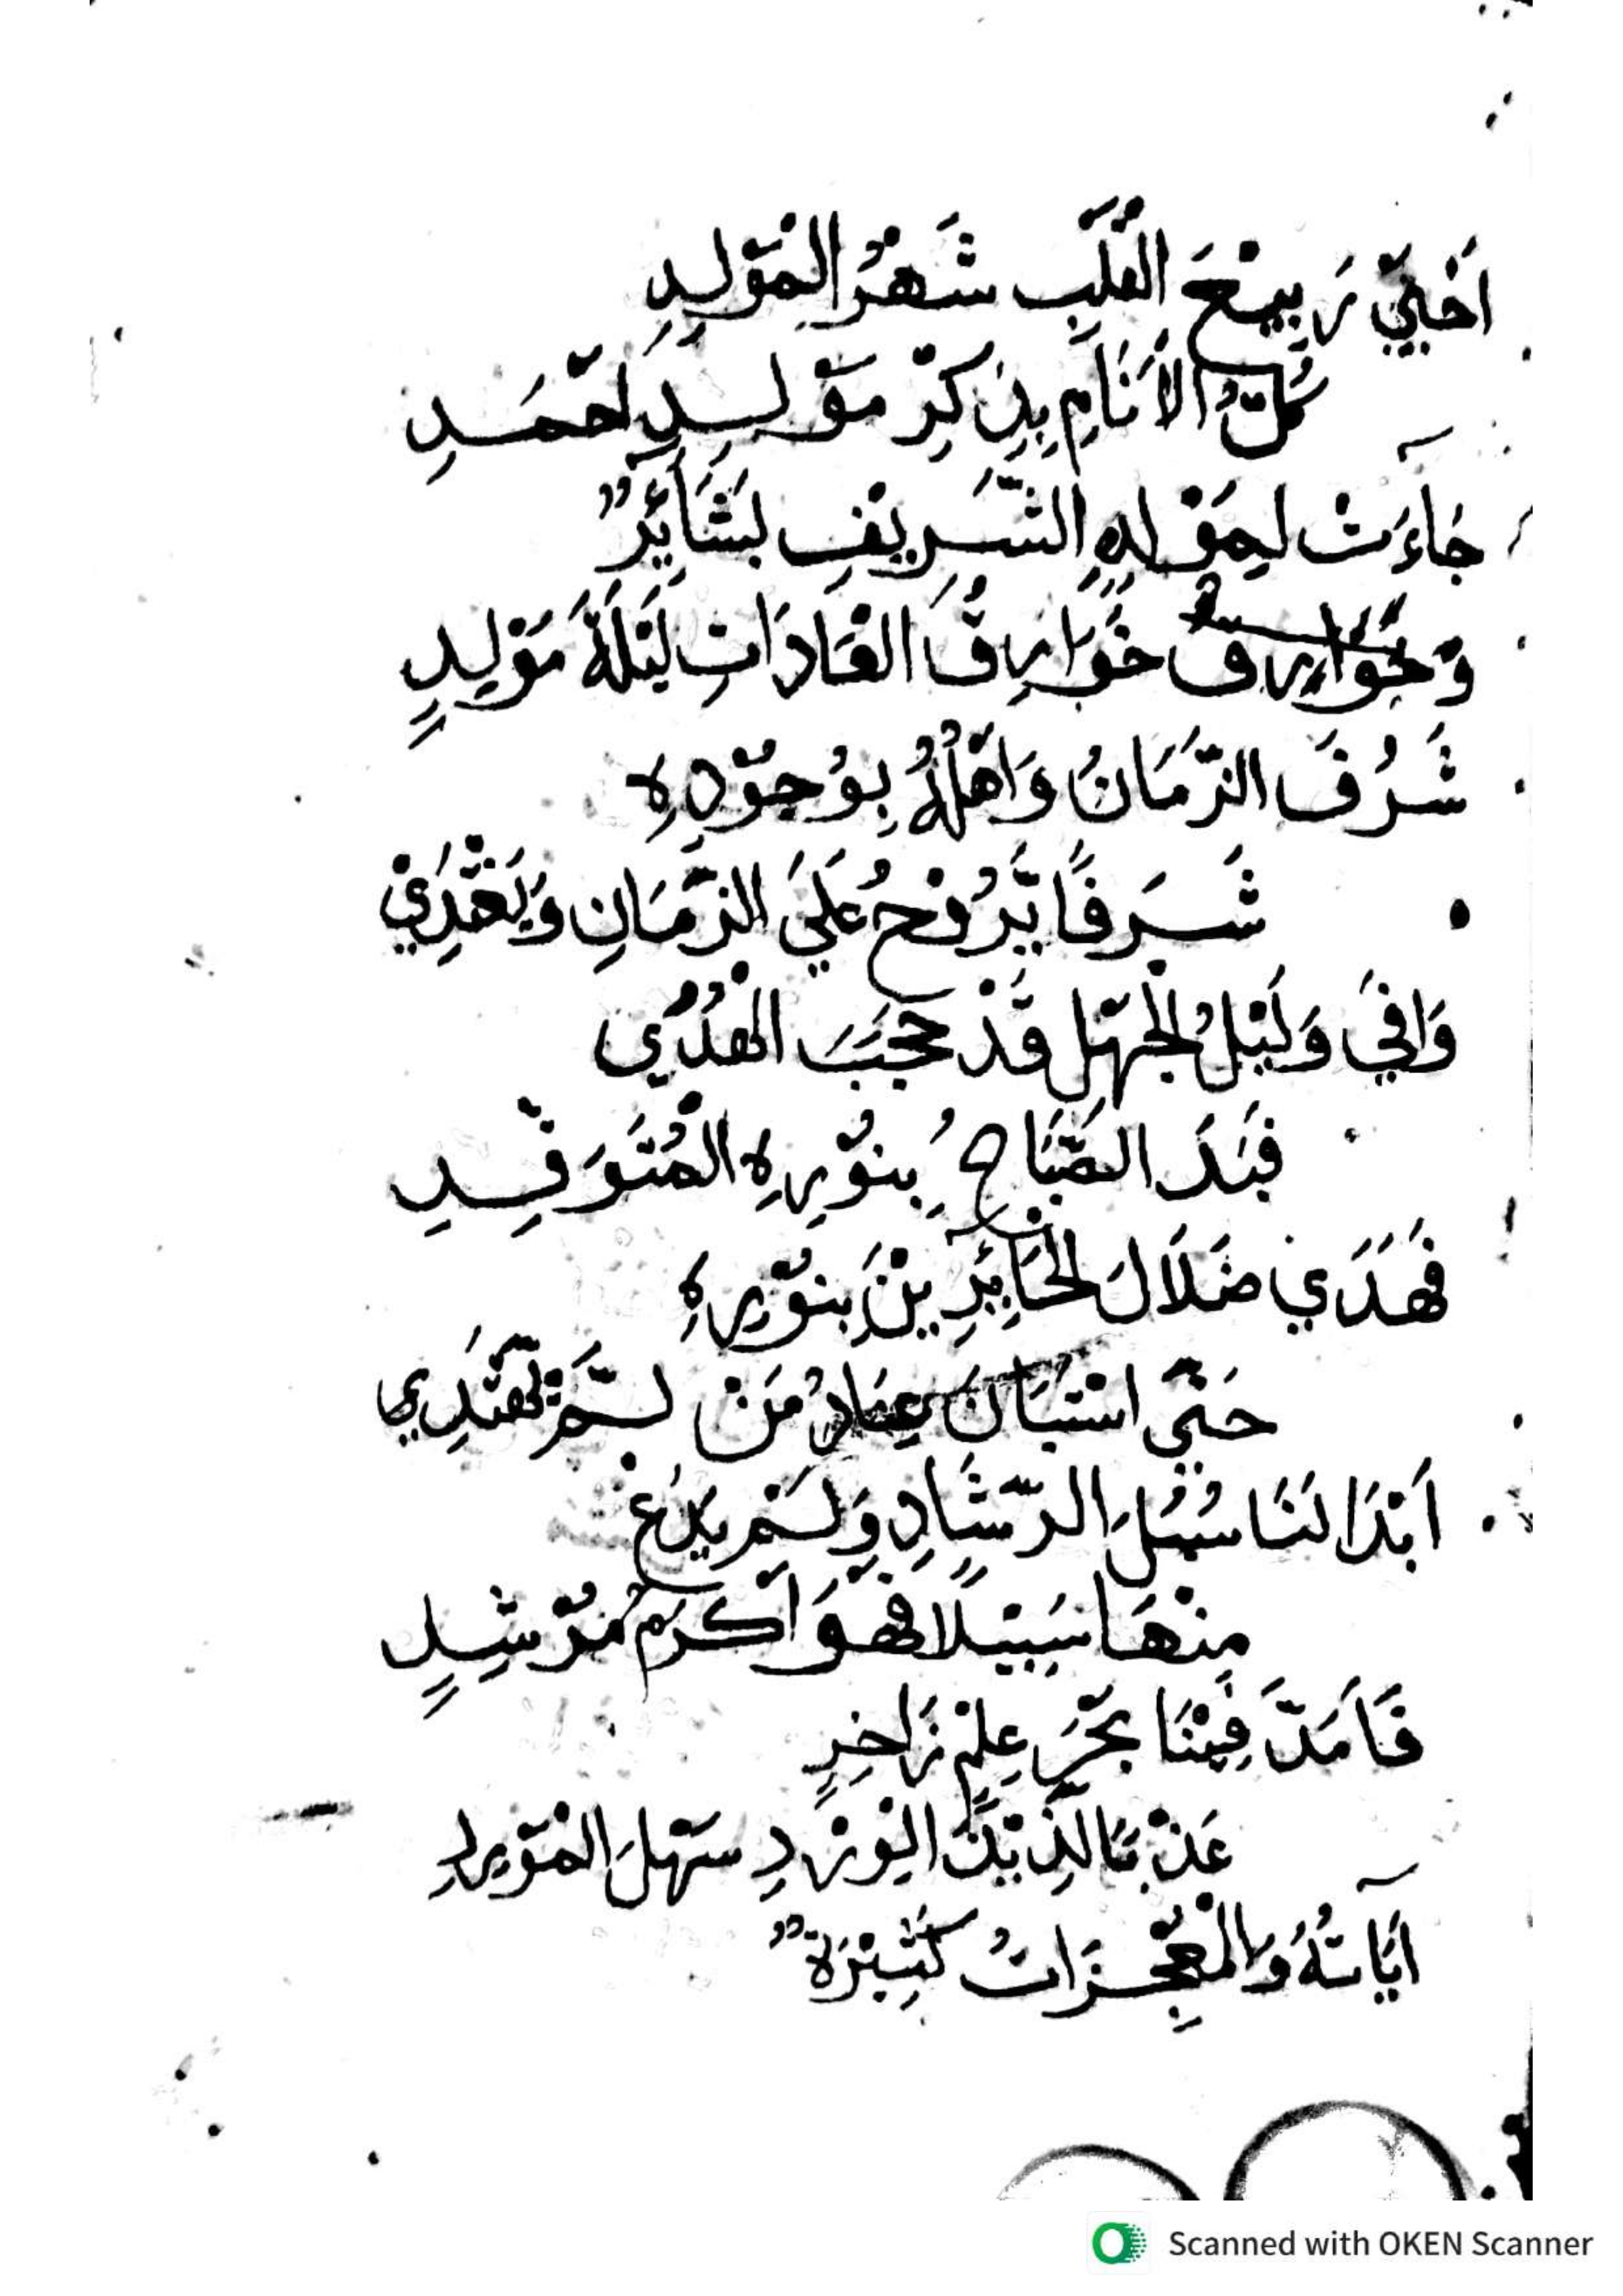 اَحْيٰي رَبِيْعَ الْقَلْبِ شَهْرُ الْمَوْلِدِ
كُلَّ الْاَنَامِ بِذِكْرِ مَوْلِدِ اَحْمَدِ
جَاءَتْ لِمَوْلِدِهِ الشَّرِيْفِ بَشَائِرٌ
وَخَوَارِقُ خَوَارِقُ الْعَادَاتِ لَيْلَةَ مَوْلِدٍ
شَرُفَ الزَّمَانُ وَاَهْلُهُ بِوُجُوْدِهِ
شَرَفًا يَّرُفْعُ عَلَيَ الزَّمَانِ وَيَغْتَدِيْ
وَافَيَ وَلَيْلُ الْجَهْلِ قَدْ حَجَبَ الْهُدَي
فَبَدَ الصَّبَاحُ بِنُوْرِهِ الْمُتَوَقِّدِ
فَهَدَي ضَلَالَ الْحَائِرِيْنَ بِنُوْرِهِ
حَتّٰي اسْتَبَانَ عِنَادُ مَنْ لَّمْ يَهْتَدِي
اَبْدَا لَنَا سُبُلَ الرَّشَادِ وَلَمْ يَدَعْ
مِنْهَا سَبِيْلًا فَهْوَ اَكْرَمُ مُرْشِدٍ
فَاَمَدَّ فِيْنَا بَحْرَ عِلْمٍ زَاخِرٍ
عَذْبًا لَذِيْذَ الْوِرْدِ سَهْلَ الْمَوْرِدِ
اٰيَاتُهُ وَالْمُعْجِزَاتُ كَثِيْرَةٌ
Scanned with OKEN Scanner